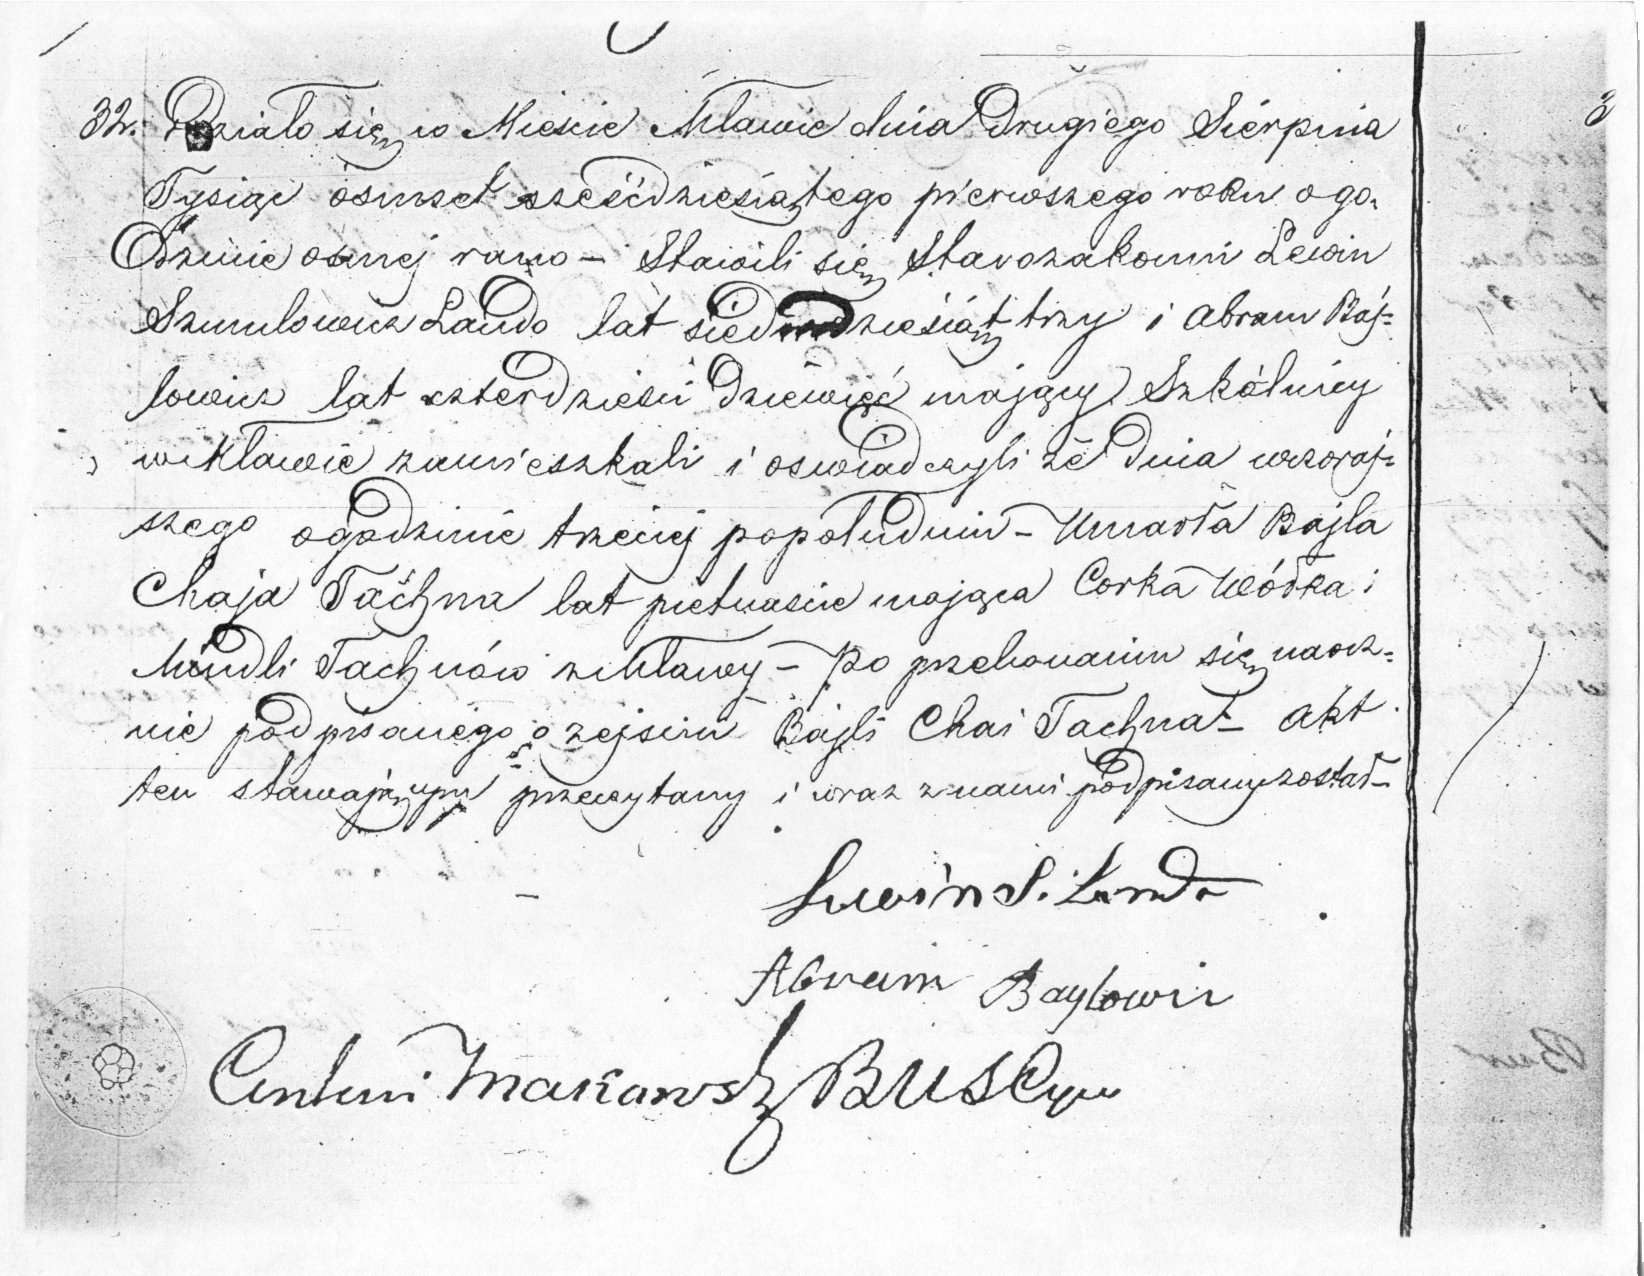 32. Działo się w Mieście Mławie dnia Drugiego Sierpnia
Tysiąc ośmset sześćdziesiątego pierwszego roku o go-
Dzinie osmej rano – Stawili się Starozakonni Lewin
Szmulowicz Lando lat siedmdziesiąt trzy i Abram Baj-
lowicz lat czterdzieści Dziewięć mający Szkólnicy
w Mławie zamieszkali i oswiadczyli że Dnia wczoraj-
szego o godzinie trzeciej popołudniu – Umarła Bajla
Chaja Tachna lat pietnascie mająca Corka Wółka i
Mindli Tachnów z Mławy – Po przekonaniu się naocz-
nie podpisanego o zejsciu Bajli Chai Tachna – Akt
ten stawającym przeczytany i wraz z nami podpisany został –
Lewin S. Lando
Abram Baylowic
Antoni Makowski BUSCywi